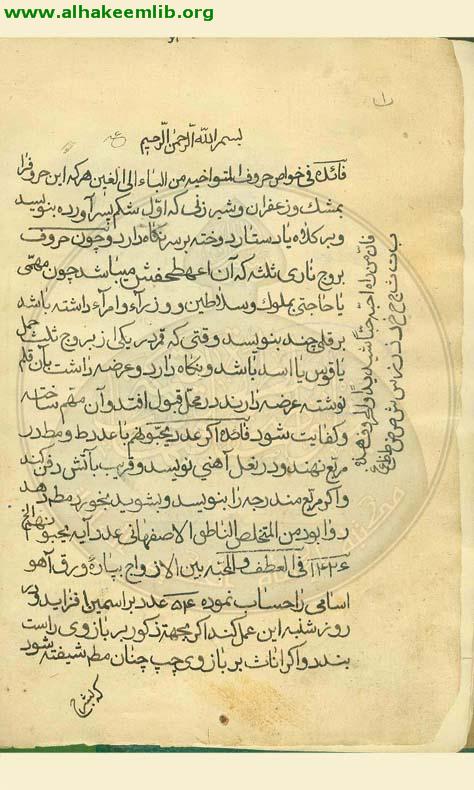 www.alhakeemlib.org
بسم الله الرحمن الرحیم
فائدة فی خواص حروف المتواخیه من الباء الی الغین هر که این حروف را
بمشک و زعفران و شیر زنی که اوّل شکم پسر آورده بنویسد
و بر کلاه یا دستار دوخته بر سر نگاه دارد و چون حروف
بروج ناری ثلثه که آن اهطمفشذ میباشد چون مهمّی
یا حاجتی بملوک و سلاطین و وزراء و امراء داشته باشد
بر قلمی چند بنویسد وقتی که قمر در یکی از بروج ثلث حمل
یا قوس یا اسد باشد و نگاه دارد و عرضه داشت بآن قلم
نوشته عرضه دارند در محلّ قبول افتد و آن مهم ساخته
و کفایت شود فائده اگر عدد یحبّونهم با عدد ط و مط در
مربّع نهند و در نعل آهنی نویسد و قریب بآتش دفن کند
و اگر مربّع مندرجه را بنویسد و بشوید بخورد مط دهد
روا بود من المتخلص الناطق الاصفهانی عدد آیه یحبّونهم الخ
۱۴۲۶ فی العطف و المحبّة بین الازواج بپارهٔ ورق آهو
اسامی را حساب نموده ۵۱۴ عدد بر اسمین افزاید در
روز شنبه این عمل کند اگر بجهة ذکور بر بازوی راست
بندد و اگر اناث بر بازوی چپ چنان مط شیفته شود
که بشرح